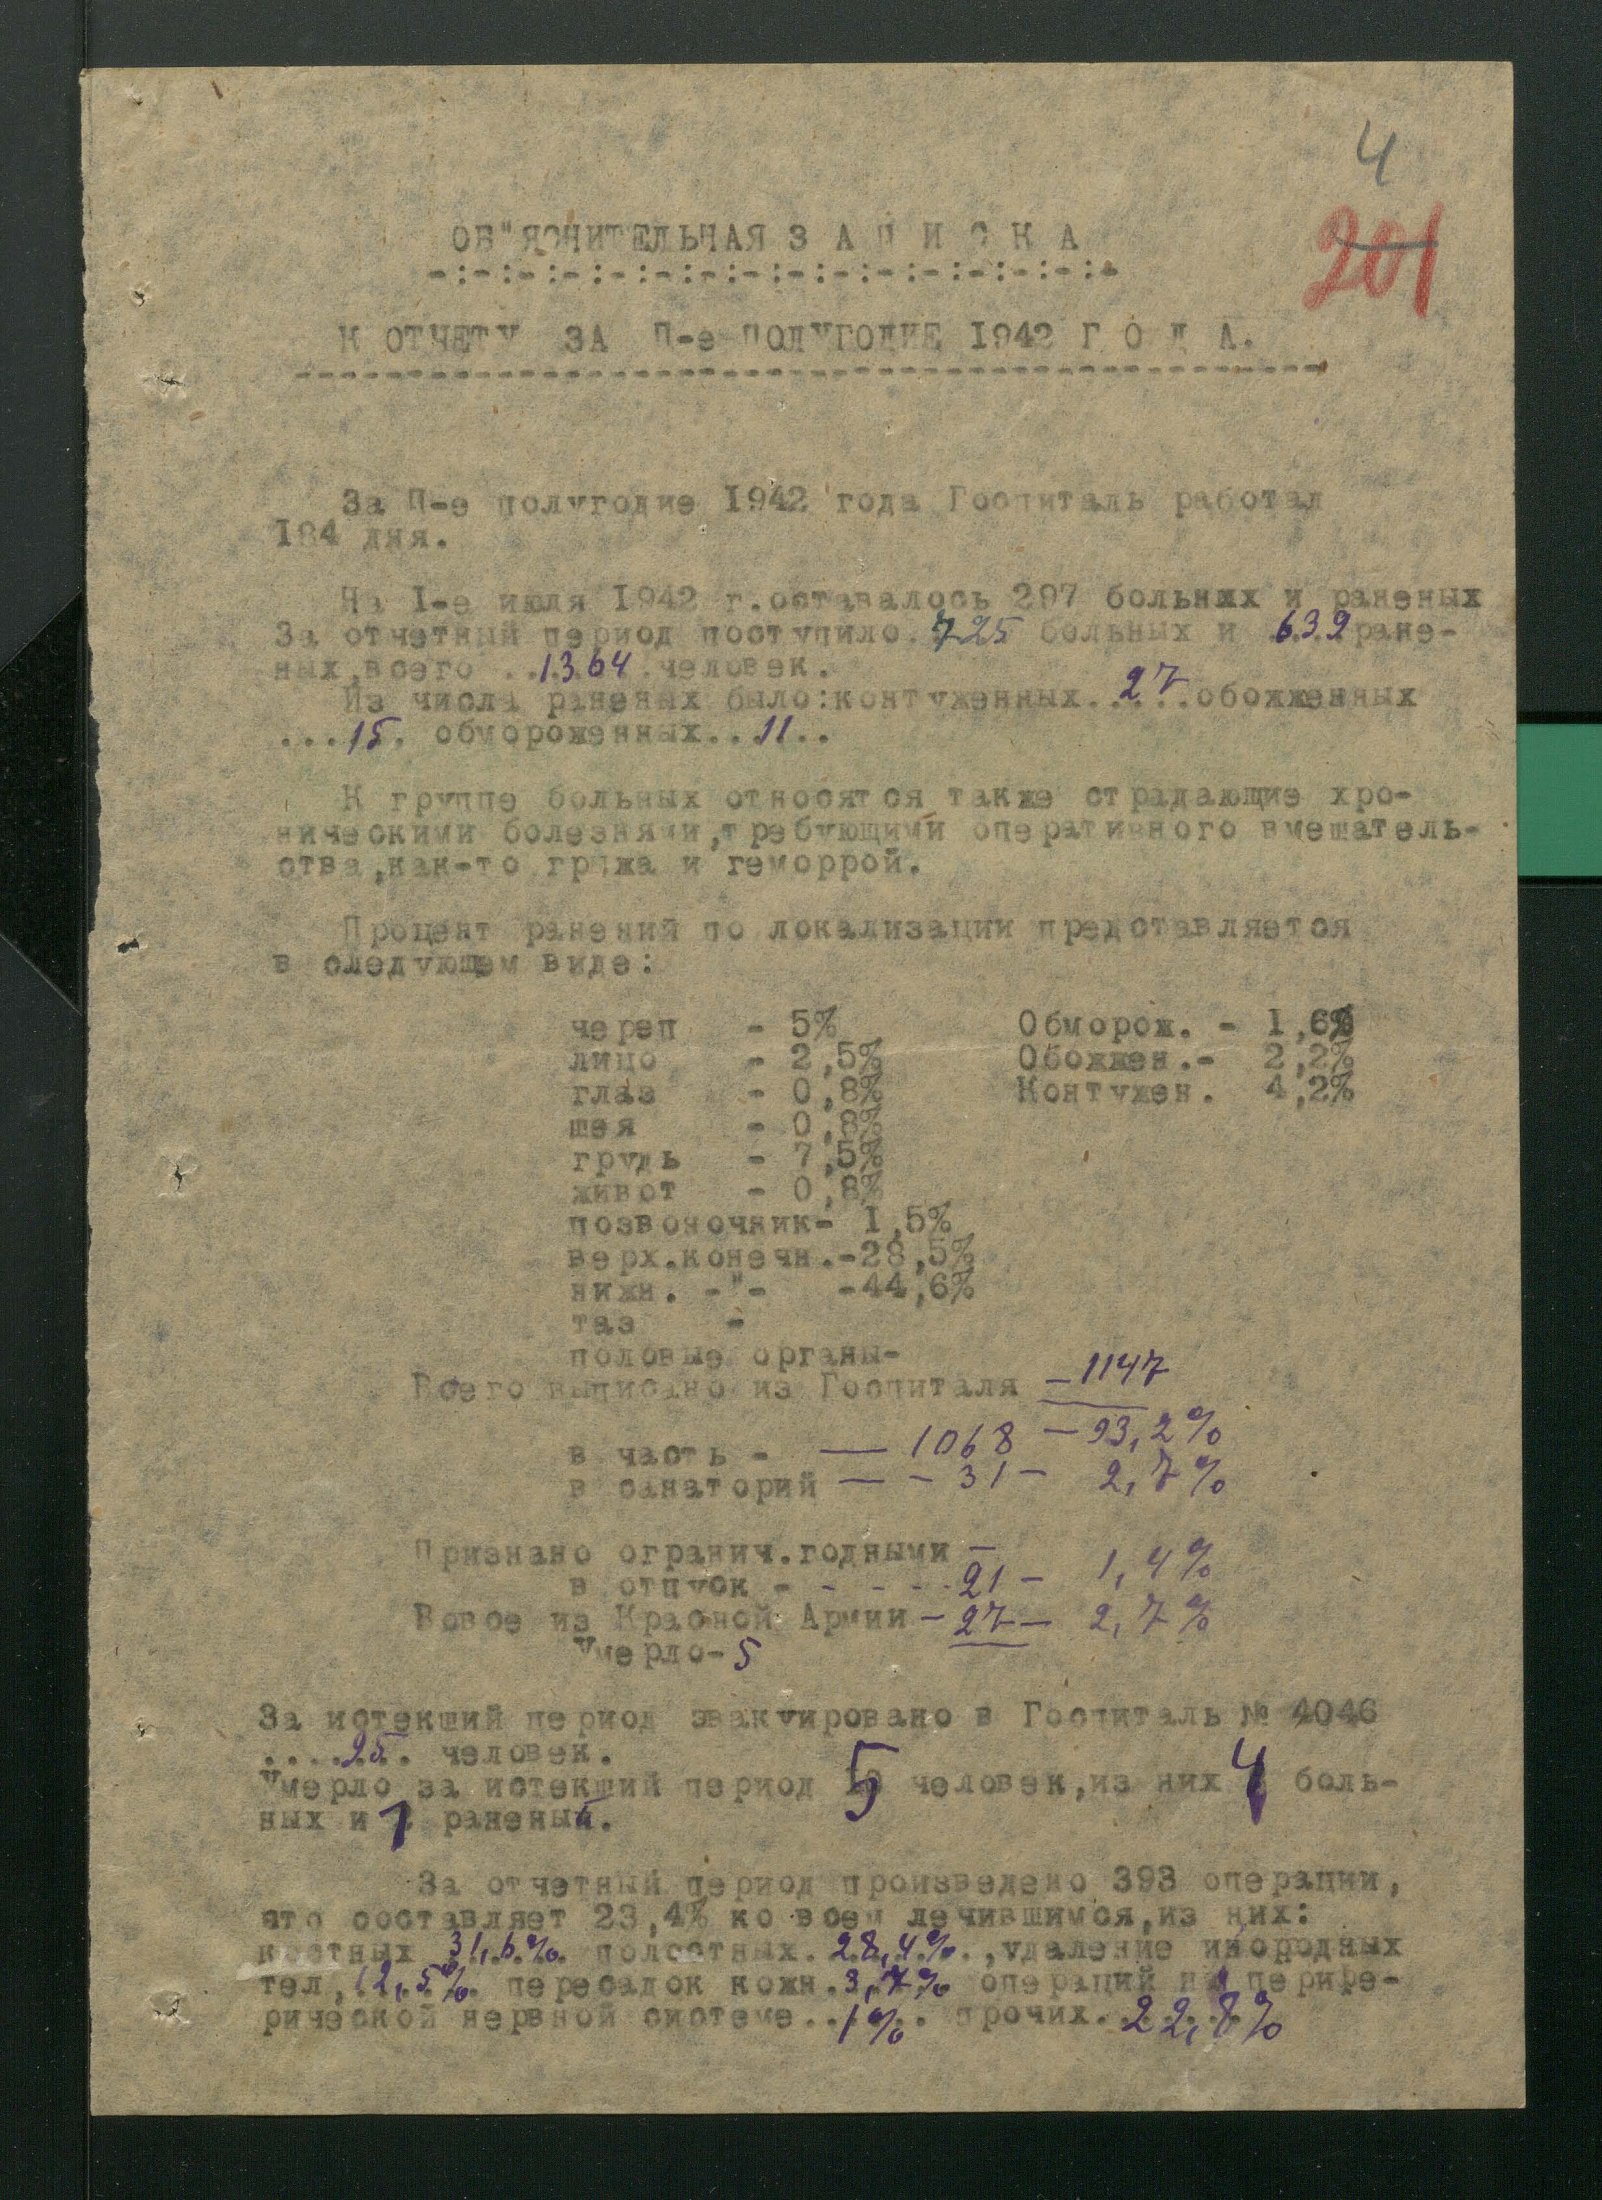 4
201
ОБ"ЯСНИТЕЛЬНАЯ З А П И С К А
-:-:-:-:-:-:-:-:-:-:-:-:-:-:-:-
К ОТЧЕТУ ЗА П-е ПОЛУГОДИЕ 1942 Г О Д А.
За П-е полугодие 1942 года Госпиталь работал
184 дня.
На I-е июля 1942 г.оставалось 297 больных и раненых
За отчетный период поступило 725 больных и 639 ране-
ных,всего ..1364.человек.
Из числа раненых было:контуженных..27...обожженных
...15. обмороженных..11..
К группе больных относятся также страдающие хро-
ническими болезнями,требующими оперативного вмешатель-
ства,как-то грыжа и геморрой.
Процент ранений по локализации представляется
в следующем виде:
череп - 5% Обморож. - 1,6%
лицо - 2,5% Обожжен.- 2,2%
глаз - 0,8% Контужен. 4,2%
шея - 0,8%
грудь - 7,5%
живот - 0,8%
позвоночник- 1,5%
верх.конечн.-28,5%
нижн. -"- -44,6%
таз -
половые органы-
Всего выписано из Госпиталя - 1147
в часть - — 1068 — 93,2%
в санаторий — - 31 - 2,7%
Признано огранич.годными -
в отпуск - - - - - 21 - 1,4%
Вовсе из Красной Армии - 27 - 2,7%
Умерло-5
За истекший период эвакуировано в Госпиталь № 4046
....25. человек.
Умерло за истекший период 5 человек,из них 4 боль-
ных и 1 раненый.
За отчетный период произведено 393 операции,
что составляет 23,4% ко всем лечившимся,из них:
костных 31,6%. полостных.28,4%.,удаление инородных
тел,12,5%. пересадок кожи.3,7% операций на перифе-
рической нервной системе..1%. прочих.22,8%